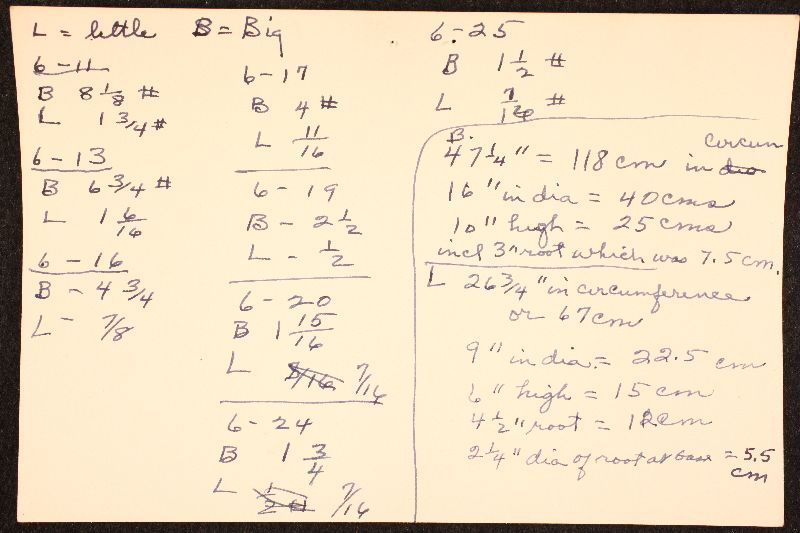 L = little B = Big
6-11
B 8 1/8 #
L 1 3/4 #
6-13
B 6 3/4 #
L 1 6/16
6-16
B - 4 3/4
L - 7/8
6-17
B 4 #
L 11/16
6-19
B - 2 1/2
L - 1/2
6-20
B 1 15/16
L 7/16
6-24
B 1 3/4
L 7/16
6-25
B 1 1/2 #
L 7/16 #
B.
47 1/4" = 118 cm in circum
16" in dia = 40 cms
10" high = 25 cms
incl 3" root which was 7.5 cm.
L 26 3/4" in circumference
or 67 cm
9" in dia = 22.5 cm
6" high = 15 cm
4 1/2" root = 12 cm
2 1/4" dia of root at base = 5.5
cm